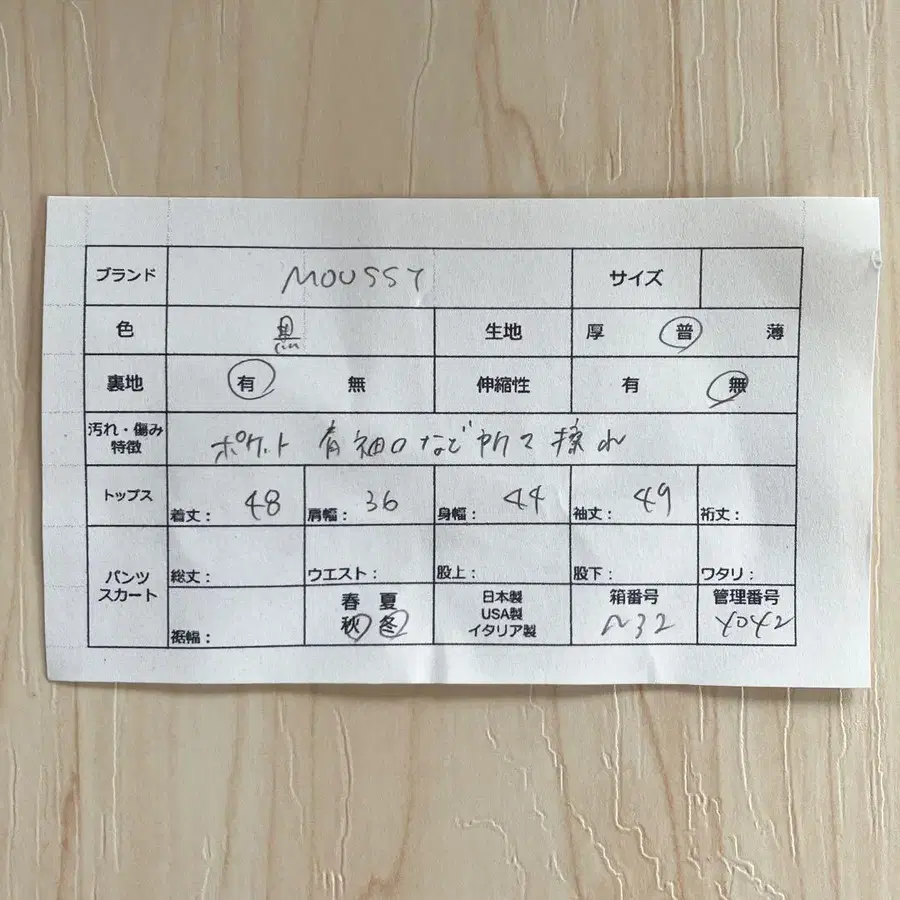 ブランド MOUSSY サイズ
色 黒 生地 厚 普 薄
裏地 有 無 伸縮性 有 無
汚れ・傷み
特徴 ポケット 有 袖口など 擦れ
トップス 着丈: 48 肩幅: 36 身幅: 44 袖丈: 49 裄丈:
パンツ
スカート 総丈: ウエスト: 股上: 股下: ワタリ:
裾幅: 春 夏
秋 冬
日本製
USA製
イタリア製
箱番号 管理番号
N32 Y042